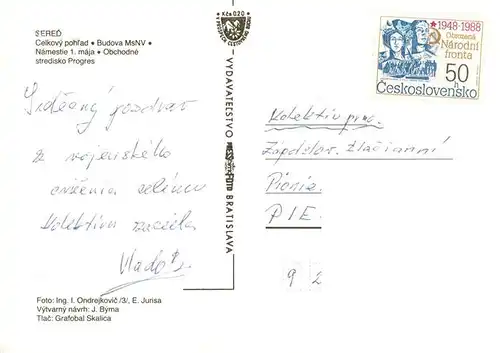 SEREĎ
Celkový pohľad • Budova MsNV •
Námestie 1. mája • Obchodné
stredisko Progres
Kčs 0,20
VYDAVATEĽSTVO BRATISLAVA
1948-1988
Obrozená
Národní
fronta
50 h
Československo
Srdečný pozdrav
z vojenského
cvičenia celému
kolektívu
Vlado
Kolektív prac.
Západoslov. tlačiarní
Pionier
P I E.
9 2
Foto: Ing. I. Ondrejkovič /3/, E. Jurisa
Výtvarný návrh: J. Býma
Tlač: Grafobal Skalica